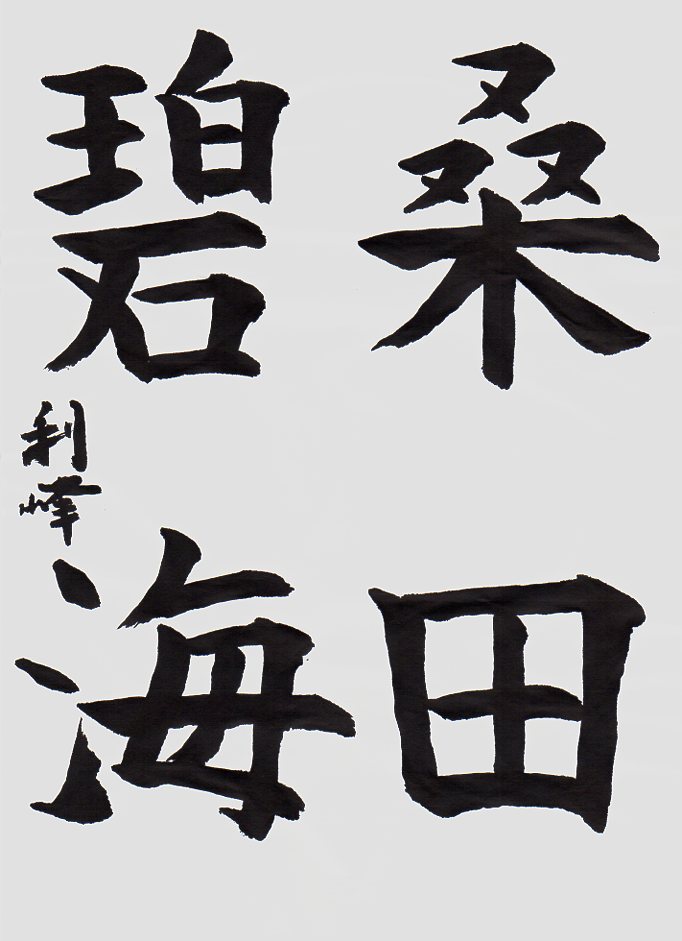 桑田
碧海
利峰